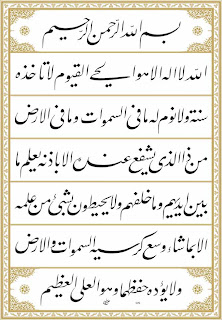 بسم الله الرحمن الرحیم
الله لا اله الا هو الحی القیوم لا تاخذه
سنة ولا نوم له ما فی السموات وما فی الارض
من ذا الذی یشفع عنده الا باذنه یعلم ما
بین ایدیهم وما خلفهم ولا یحیطون بشیئ من علمه
الا بما شاء وسع کرسیه السموات و الارض
ولا یؤده حفظهما وهو العلی العظیم